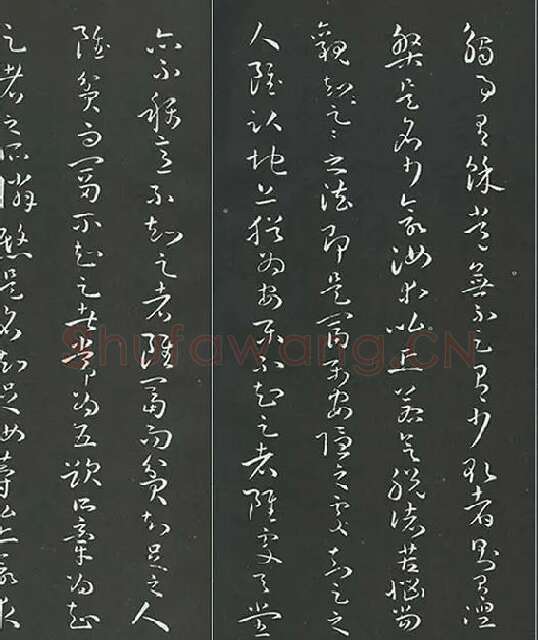 觸事有餘常無不足有少欲者則有涅
槃是名少欲汝等比丘若欲脫諸苦惱當
觀知足〻之法即是富樂安隱之處知足之
人雖臥地上猶為安樂不知足者雖處天堂
亦不稱意不知足者雖富而貧知足之人
雖貧而富不知足者常為五欲所牽為知
足者之所憐愍是名知足汝等比丘欲求
Shufawang.CN